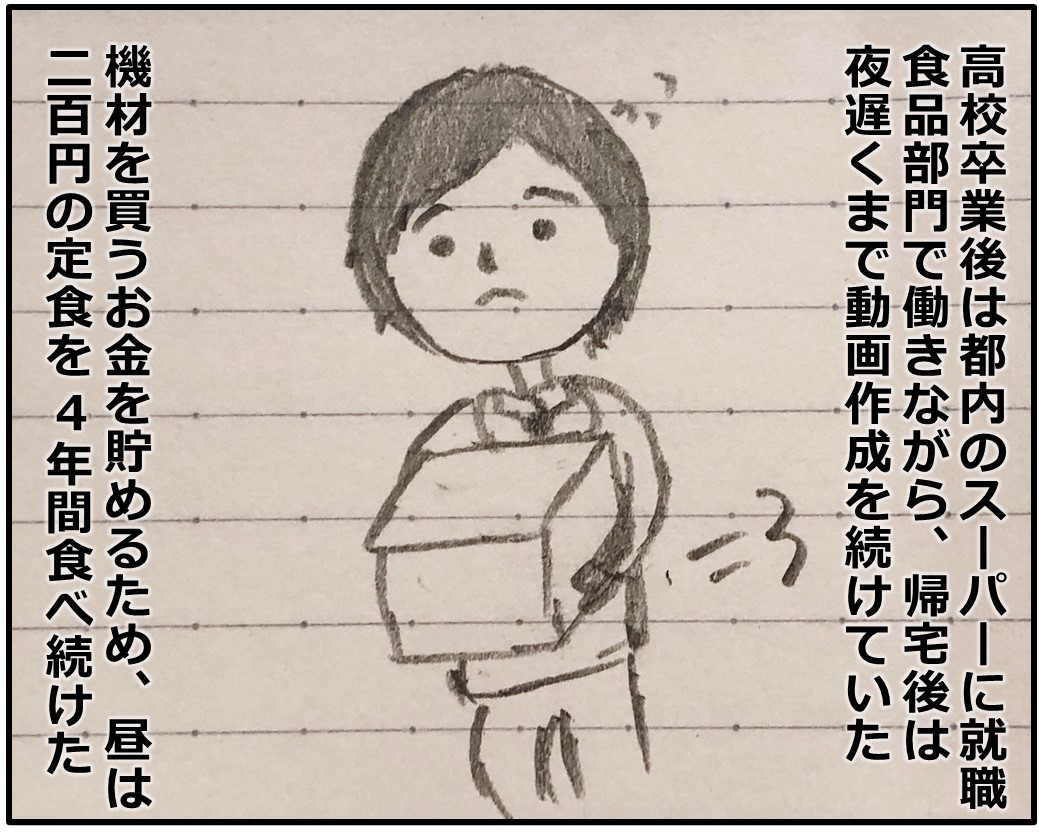 高校卒業後は都内のスーパーに就職
食品部門で働きながら、帰宅後は
夜遅くまで動画作成を続けていた
機材を買うお金を貯めるため、昼は
二百円の定食を４年間食べ続けた